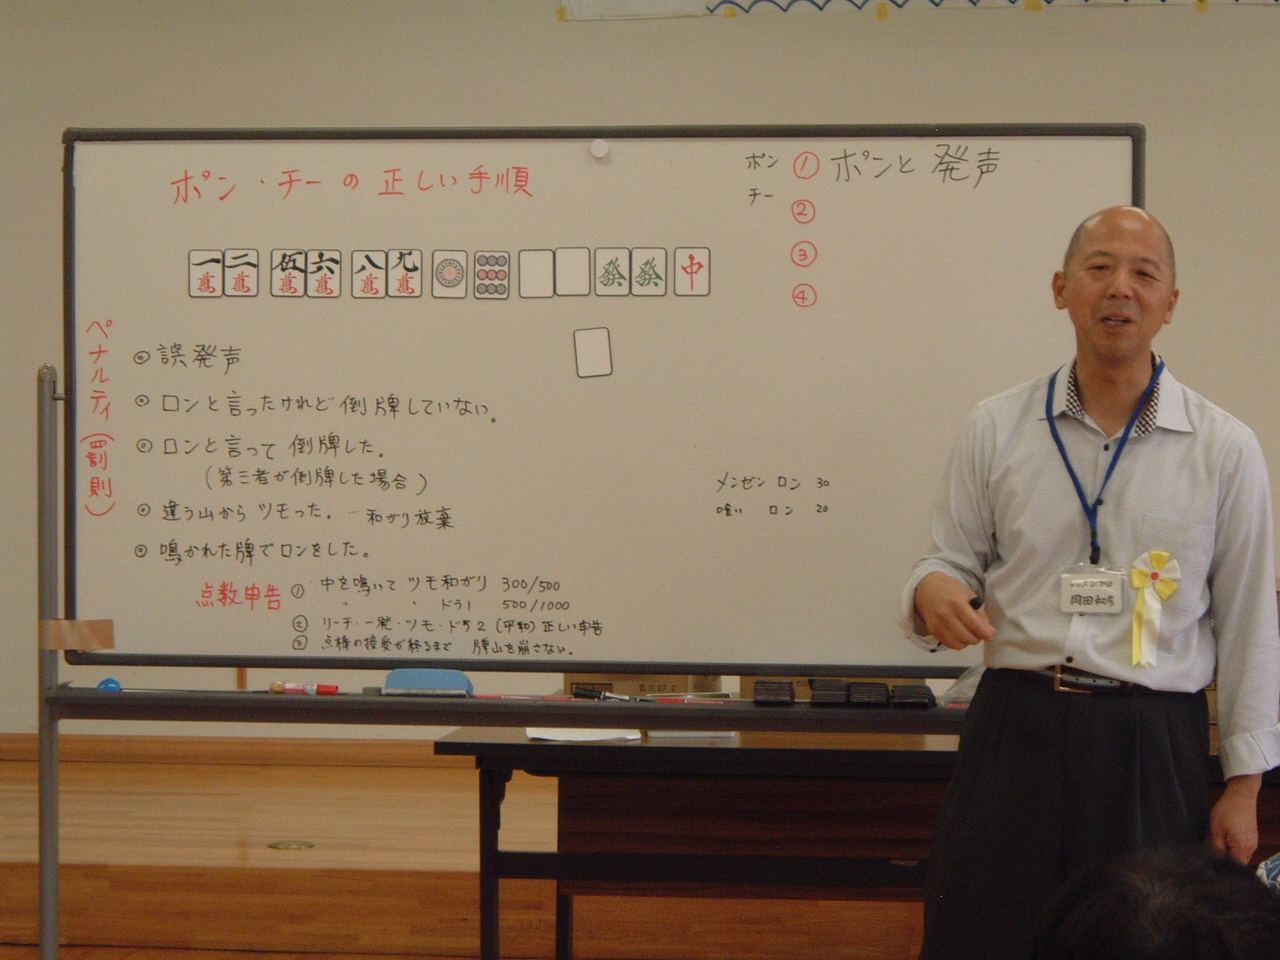 ポン・チーの正しい手順
ポン ① ポンと発声
チー ②
③
④
一萬 二萬 伍萬 六萬 八萬 九萬 發 發 中
ペナルティ(罰則)
◎ 誤発声
◎ ロンと言ったけれど倒牌していない。
◎ ロンと言って倒牌した。
(第三者が倒牌した場合)
◎ 違う山からツモった。 - 和がり放棄
◎ 鳴かれた牌でロンをした。
メンゼン ロン 30
喰い ロン 20
点数申告 ① 中を鳴いて ツモ和がり 300/500
〃 〃 ドラ1 500/1000
② リーチ・一発・ツモ・ドラ2(平和)正しい申告
③ 点棒の授受が終るまで 牌山を崩さない。
レッスンプロ
岡田和彦